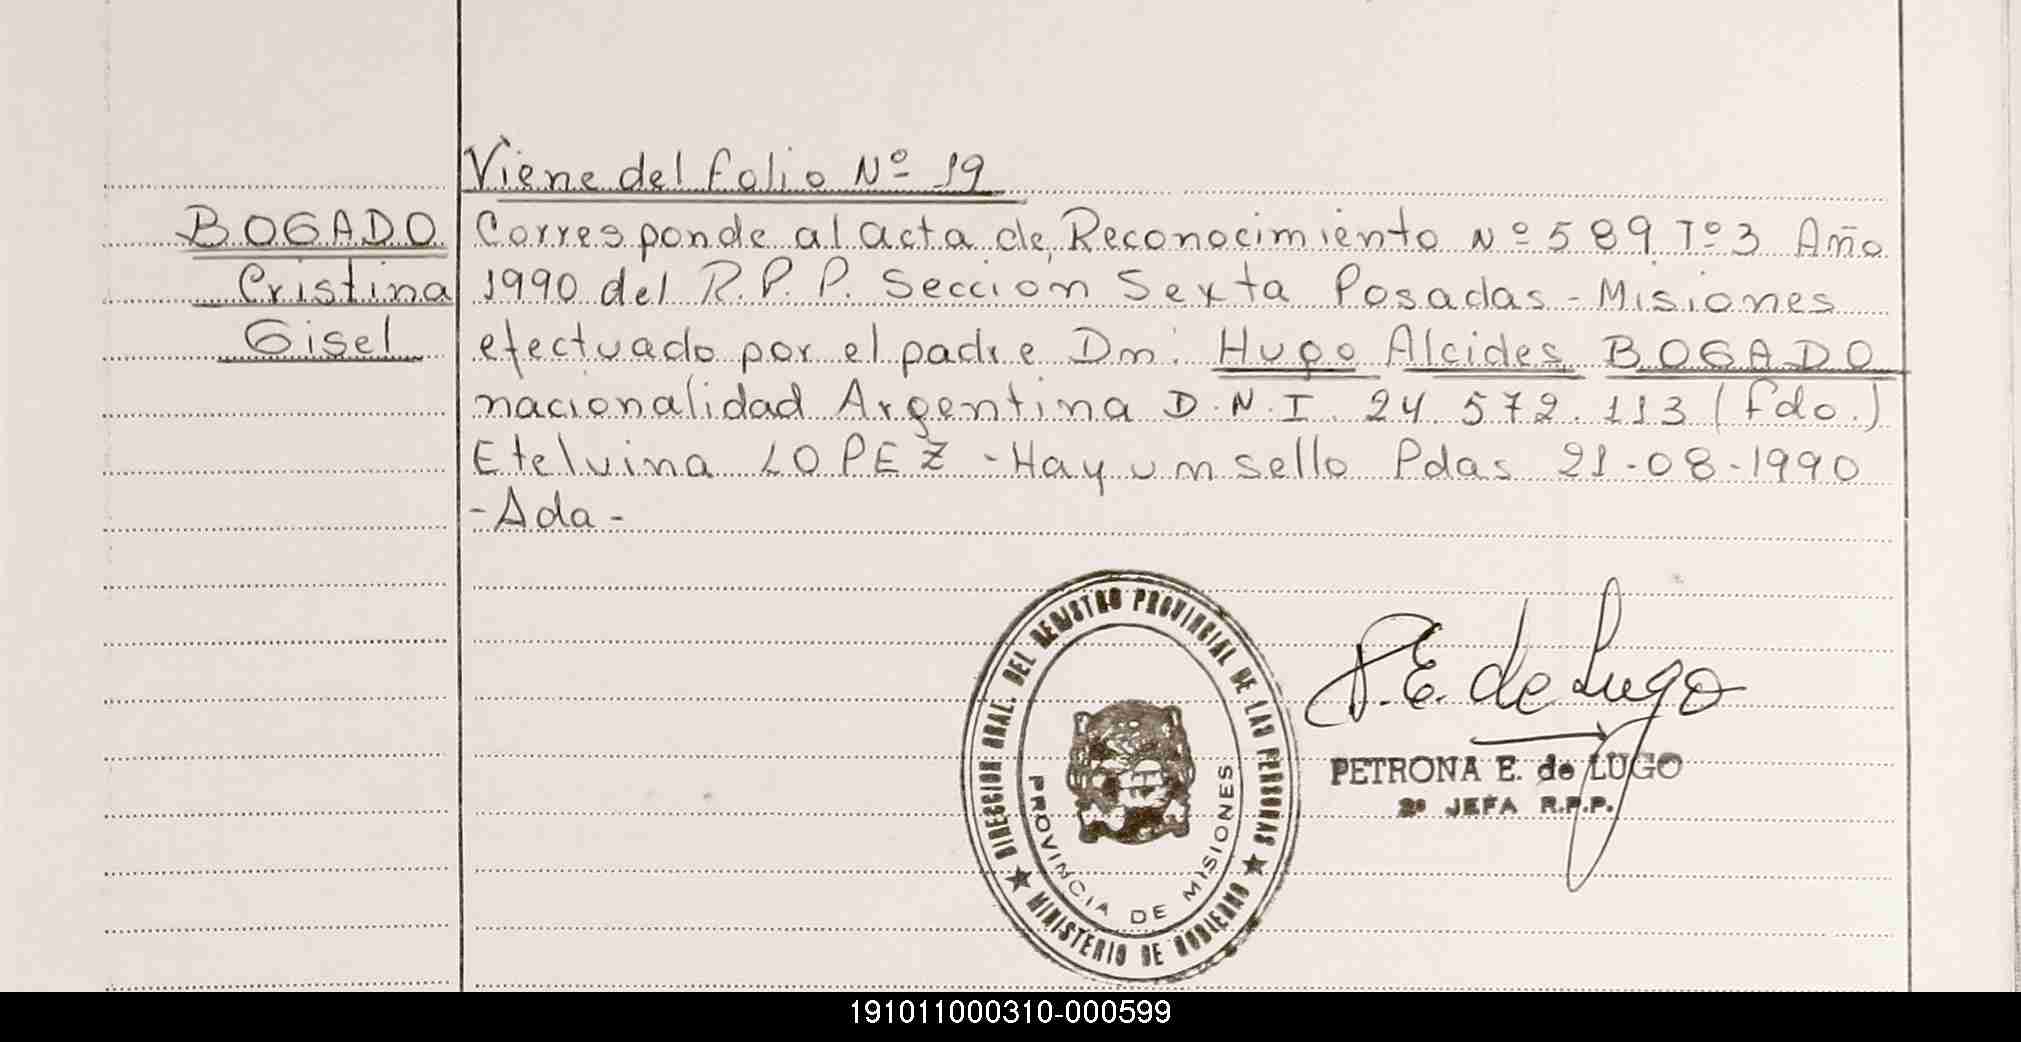 Viene del folio Nº 19
BOGADO
Cristina
Gisel
Corresponde al acta de Reconocimiento Nº 589 Tº 3 Año
1990 del R.P.P. Seccion Sexta Posadas - Misiones
efectuado por el padre Dn: Hugo Alcides BOGADO
nacionalidad Argentina D.N.I. 24 572.113 (fdo.)
Etelvina LOPEZ - Hay un sello Pdas 21-08-1990
- Ada -
DIRECCION GRAL. DEL REGISTRO PROVINCIAL DE LAS PERSONAS
MINISTERIO DE GOBIERNO
PROVINCIA DE MISIONES
P.E. de Lugo
PETRONA E. de LUGO
2º JEFA R.P.P.
191011000310-000599